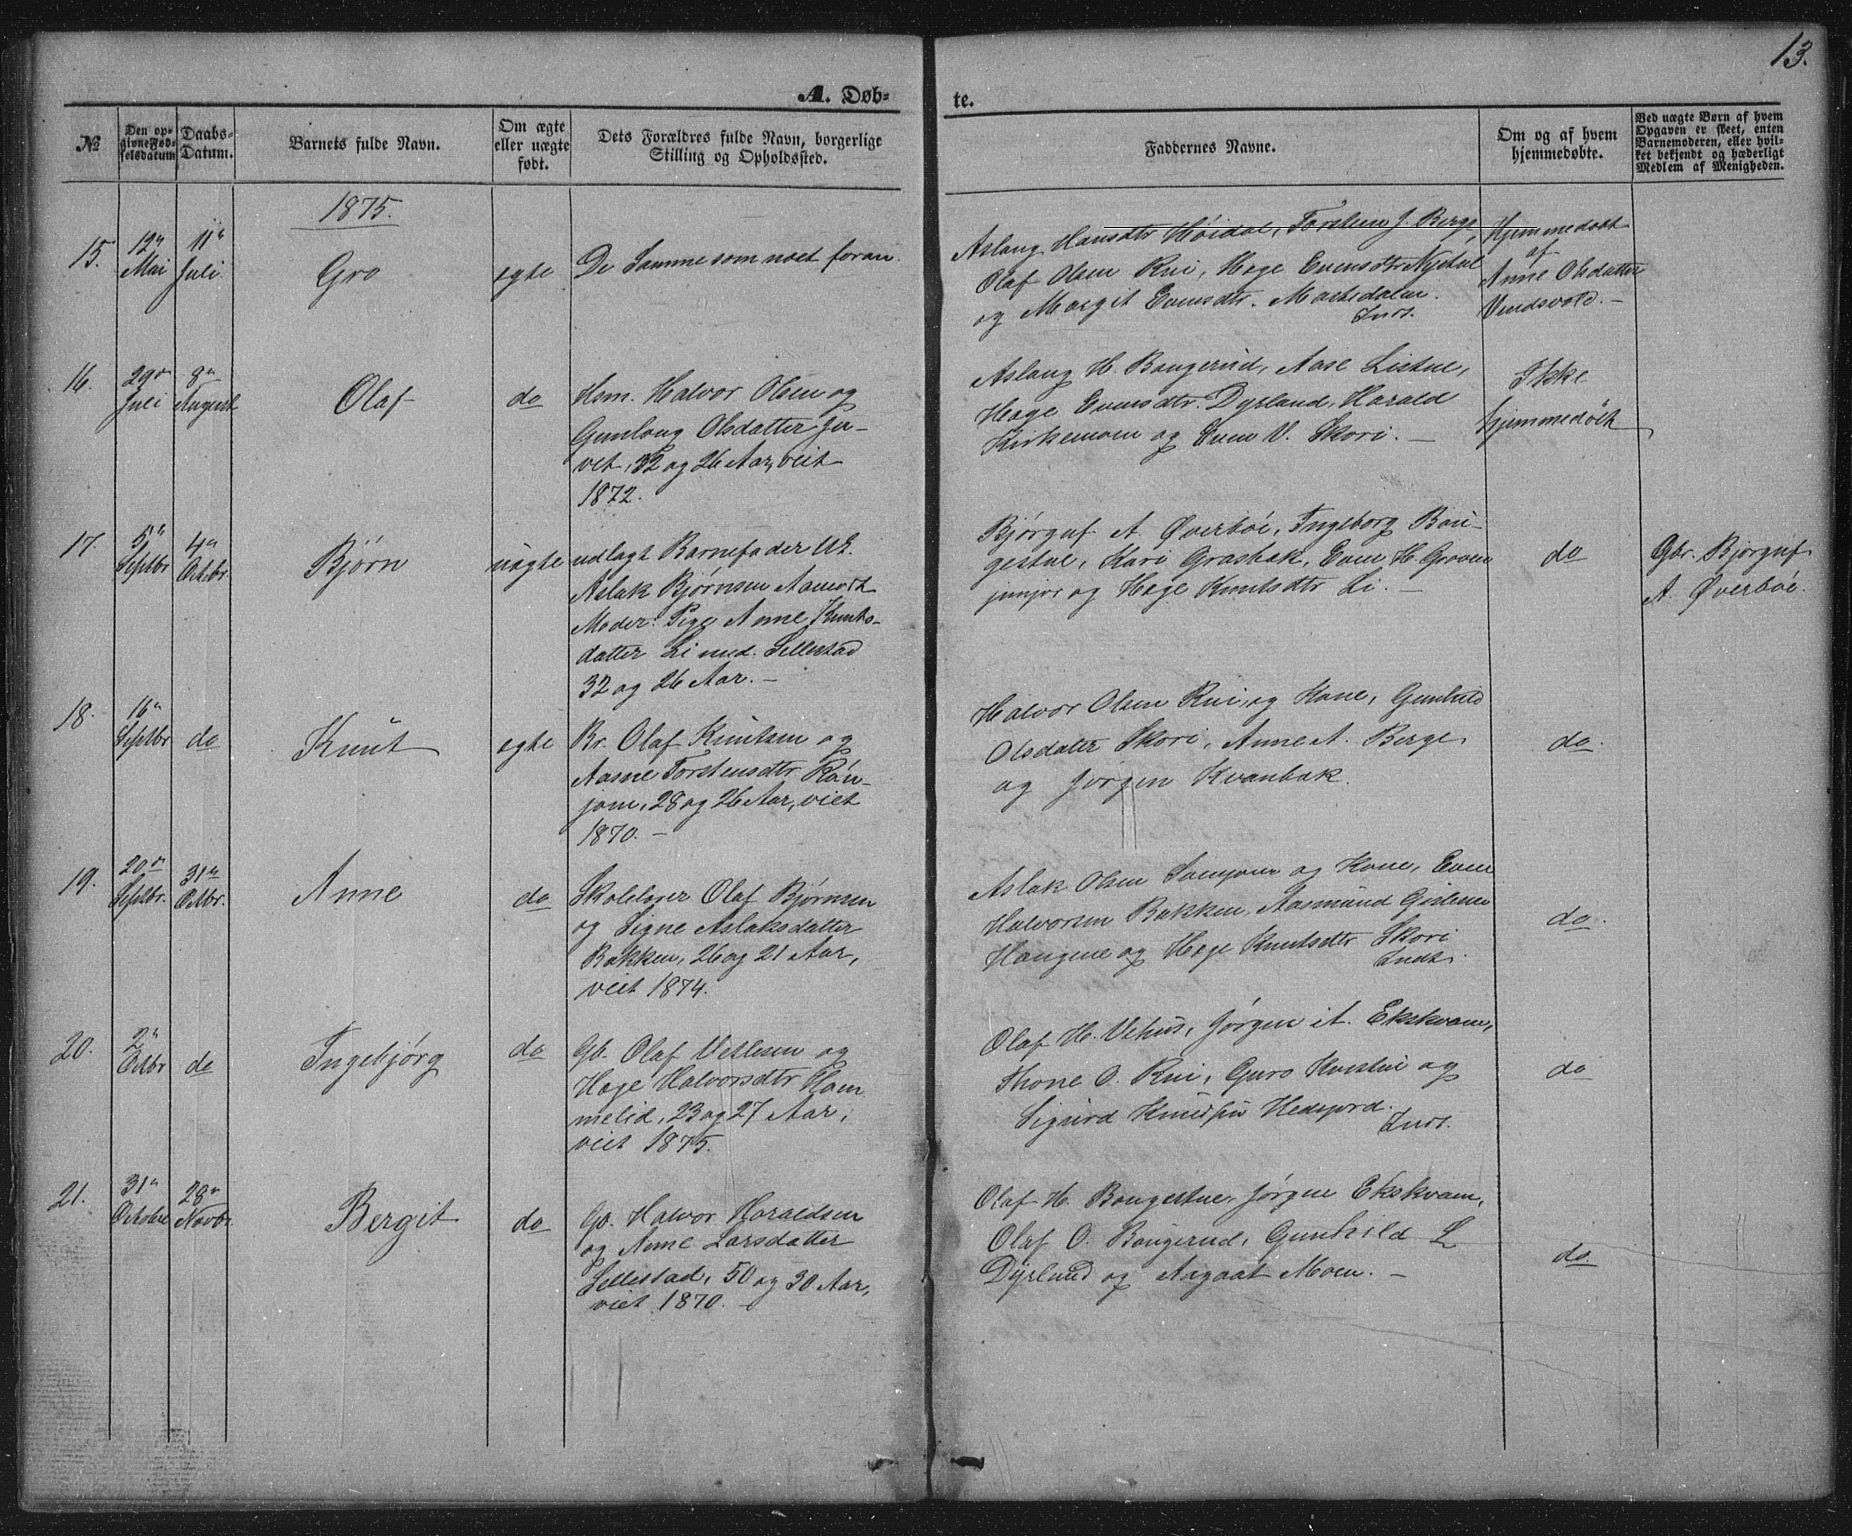 13.
A. Døb-
te.
№
Den op-
givne Fød-
selsdatum
Daabs-
Datum.
Barnets fulde Navn.
Om ægte
eller uægte
født.
Dets Forældres fulde Navn, borgerlige
Stilling og Opholdssted.
Faddernes Navne.
Om og af hvem
hjemmedøbte.
Ved uægte Børn af hvem
Opgaven er skeet, enten
Barnemoderen, eller hvil-
ket bekjendt og hæderligt
Medlem af Menigheden.
1875.
15.
12te
Mai
11te
Juli
Gro
egte
De Samme som næst foran.
Aslaug Hansdtr Høidal, Torstein J. Berge,
Olaf Olsen Rui, Hæge Evensdtr
og Margit Evensdtr.
Hjemmedøbt
af
Anne Olsdatter
Vindsvold.
16.
29de
Juli
8de
August
Olaf
do
Hsm. Halvor Olsen og
Gunlaug Olsdatter Ju-
vet, 32 og 26 Aar, viet
1872.
Aslaug H. Baugerud, Aase Listue,
Hæge Evensdtr. Dyrland, Harald
Kirkemoen og Even V. Skori.
Ikke
hjemmedøbt
17.
5te
Septbr
4de
Octobr
Bjørn
uægte
udlagt Barnefader UK.
Aslak Bjørnsen Aamodt
Moder: Pige Anne Knuts-
datter Li ned. Sellestad
32 og 26 Aar.
Bjørguf A. Øverbøe, Ingeborg Bau-
gestue, Kari Grasbak, Even H. Groven
junjor og Hæge Knutsdtr Li.
do
Gbr. Bjørguf
A. Øverbøe.
18.
16de
Septbr
do
Knut
egte
Br. Olaf Knutsen og
Aasne Torstensdtr Røn-
jom, 28 og 26 Aar, viet
1870.
Halvor Olsen Rui og Kone, Gunhild
Olsdatter Skori, Anne A. Berge
og Jørgen Kvanbæk.
do.
19.
20de
Septbr.
31te
Octbr.
Anne
do
Skolelærer Olaf Bjørnsen
og Signe Aslaksdatter
Bakken, 26 og 21 Aar,
viet 1874.
Aslak Olsen og Kone, Even
Halvorsen Bakken, Aasmund
Haugene og Hæge Knutsdtr Skori
do.
20.
2de
Octbr
do
Ingebjørg
do
Gb. Olaf Vetlesen og
Hæge Halvorsdtr Ham-
melid, 23 og 27 Aar,
viet 1875.
Olaf H. Vehus, Jørgen A. Ekskvam,
Thone O. Rui, Guro og
Sigurd
do
21.
31te
Octobr
28de
Novbr
Bergit
do
Gb. Halvor Haraldsen
og Anne Larsdatter
Sellestad, 50 og 30 Aar,
viet 1870.
Olaf H. Baugestue, Jørgen Ekskvam,
Olaf O. Baugerud, Gunhild L
Dyrland og Aagaat Moen.
do.